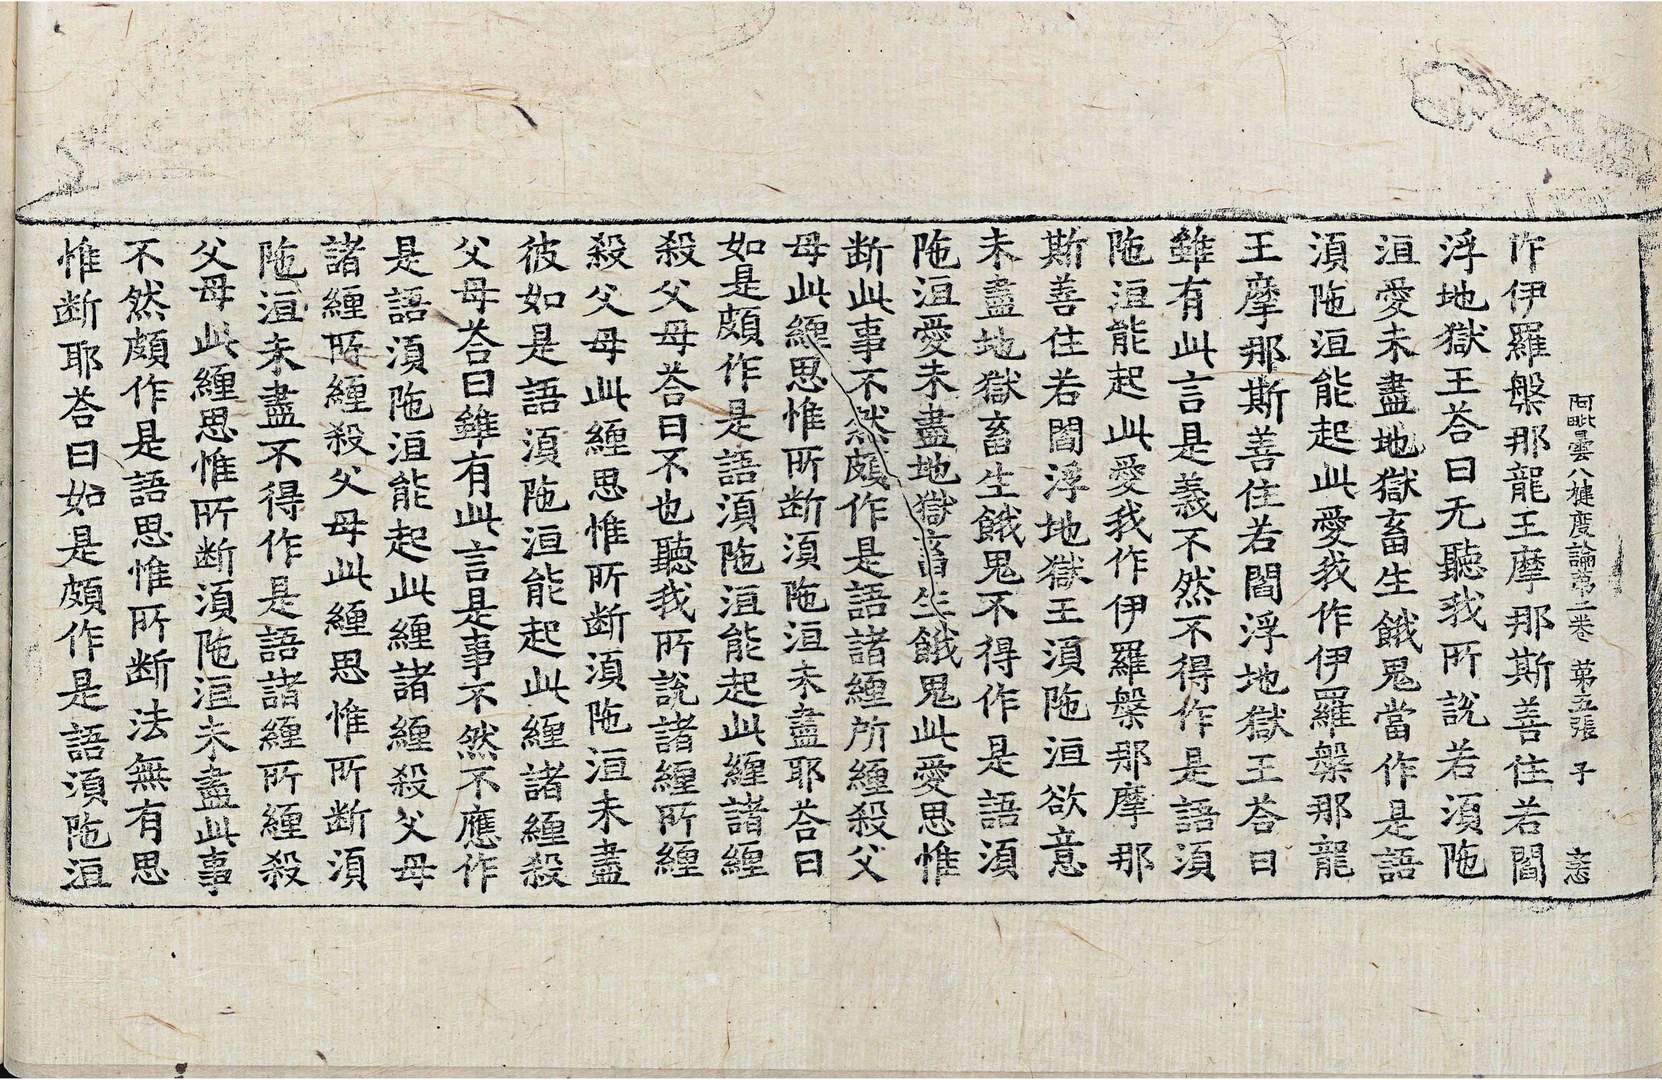 阿毗曇八揵度論第二卷　第五張　子
作伊羅槃那龍王摩那斯善住若閻
浮地獄王荅曰无聽我所說若湏陁
洹愛未盡地獄畜生餓鬼當作是語
湏陁洹能起此愛我作伊羅槃那龍
王摩那斯善住若閻浮地獄王荅曰
雖有此言是義不然不得作是語湏
陁洹能起此愛我作伊羅槃那摩那
斯善住若閻浮地獄王湏陁洹欲意
未盡地獄畜生餓鬼不得作是語湏
陁洹愛未盡地獄畜生餓鬼此愛思惟
断此事不然頗作是語諸纏所纏殺父
母此纏思惟所断湏陁洹未盡耶荅曰
如是頗作是語湏陁洹能起此纏諸纏
殺父母荅曰不也聽我所說諸纏所纏
殺父母此纏思惟所断湏陁洹未盡
彼如是語湏陁洹能起此纏諸纏殺
父母荅曰雖有此言是事不然不應作
是語湏陁洹能起此纏諸纏殺父母
諸纏所纏殺父母此纏思惟所断湏
陁洹未盡不得作是語諸纏所纏殺
父母此纏思惟所断湏陁洹未盡此事
不然頗作是語思惟所断法無有思
惟断耶荅曰如是頗作是語湏陁洹